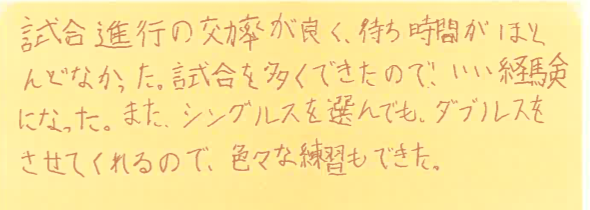 試合進行の効率が良く、待ち時間がほと
んどなかった。試合を多くできたので、いい経験
になった。また、シングルスを選んでも、ダブルスを
させてくれるので、色々な練習もできた。